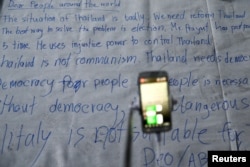 Dear People around the world
The situation of Thailand is badly. We need retong Thailand
The best way to solve the problem is election. Mr Prayut has
5 time. He uses injustice power to control Thailand
Thailand is not communism Thailand needs democ
democracy for people people is necessa
thout democracy dangerous
litary is not suitable for
Reuters